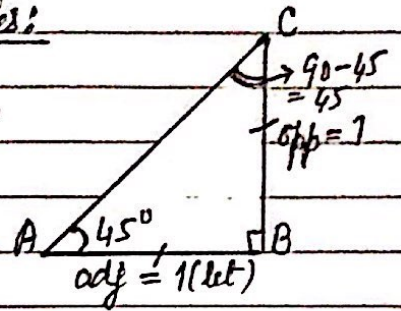 es:
C
90-45
= 45
opp = 1
A
45°
B
adj = 1(let)